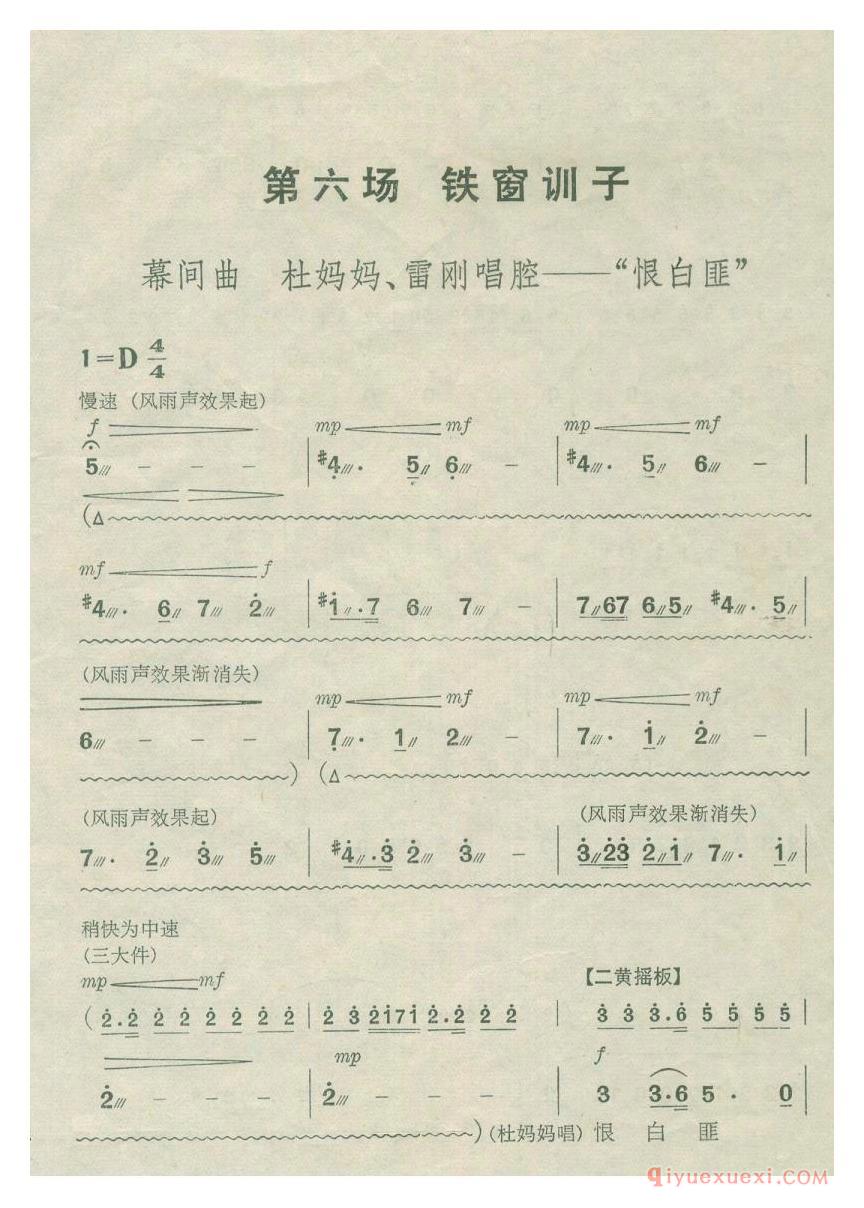 第六场 铁窗训子
幕间曲 杜妈妈、雷刚唱腔——“恨白匪”
1=D 4/4
慢速 (风雨声效果起)
f mp mf mp mf
5/// - - - | #4///. 5// 6/// - | #4///. 5// 6/// - |
(△
mf f
#4///. 6// 7/// 2/// | #1//.7 6// 7/// - | 7//67 6//5// #4///. 5// |
(风雨声效果渐消失)
mp mf mp mf
6/// - - - | 7///. 1// 2/// - | 7///. 1// 2/// - |
) (△
(风雨声效果起) (风雨声效果渐消失)
7///. 2// 3/// 5/// | #4//.3 2// 3/// - | 3//23 2//1// 7///. 1// |
稍快为中速
(三大件)
mp mf 【二黄摇板】
(2.2 2 2 2 2 2 2 | 2 3 2171 2.2 2 2 | 3 3 3.6 5 5 5 5 |
mp f
2/// - - - | 2/// - - - | 3 3.6 5 . 0 |
) (杜妈妈唱) 恨 白 匪
qiyuexuexi.com